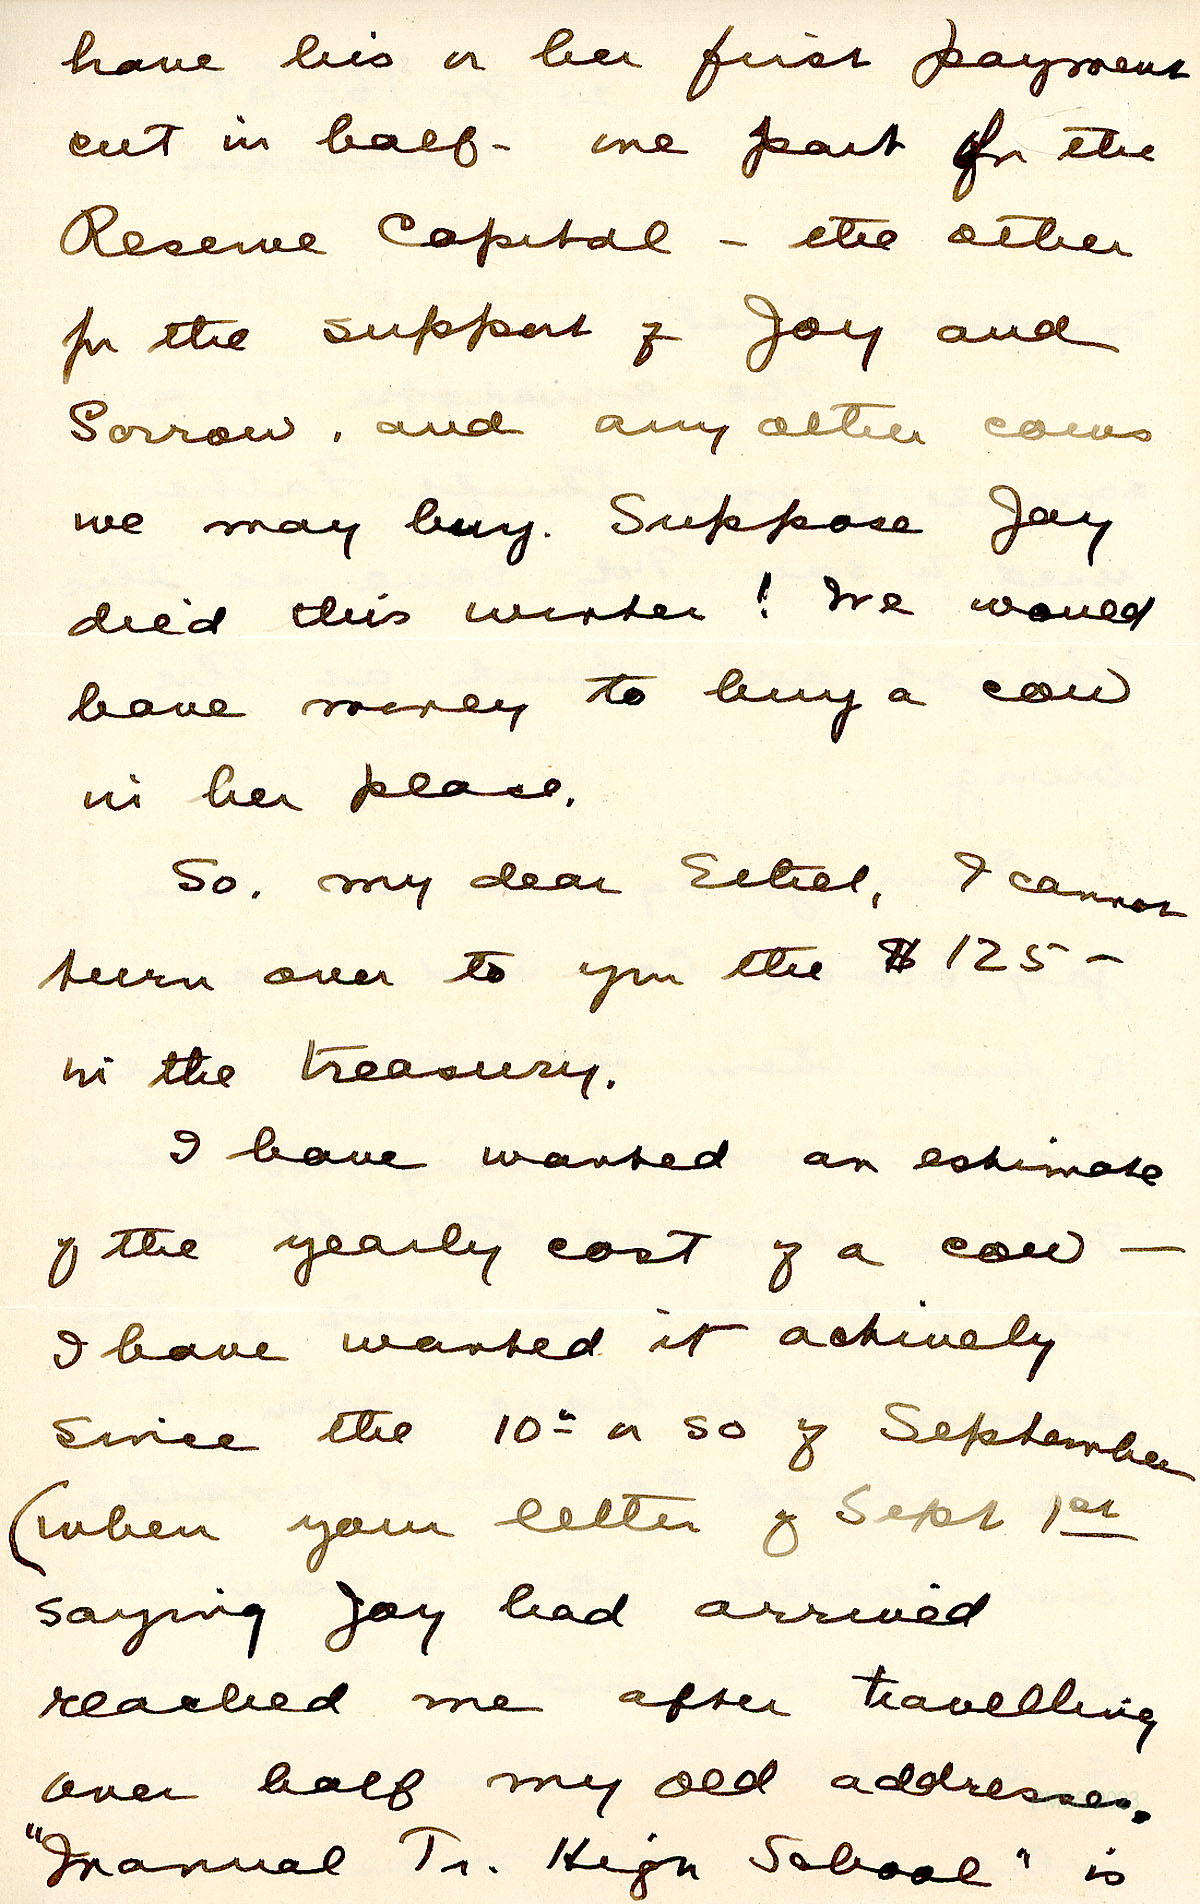 have his or her first payment
cut in half - one part for the
Reserve Capital - the other
for the support of Joy and
Sorrow, and any other cows
we may buy. Suppose Joy
died this winter! We would
have money to buy a cow
in her place.
So, my dear Ethel, I cannot
turn over to you the $125 -
in the treasury.
I have wanted an estimate
of the yearly cost of a cow -
I have wanted it actively
since the 10th or so of September
(when your letter of Sept 1st
saying Joy had arrived
reached me after travelling
over half my old addresses.
"Manual Tr. High School" is